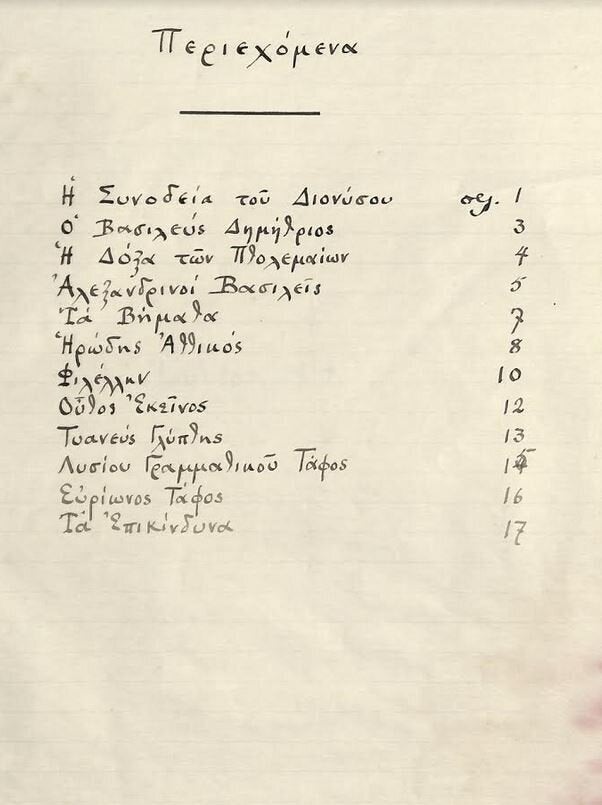 Περιεχόμενα
Ἡ Συνοδεία τοῦ Διονύσου σελ. 1
Ὁ Βασιλεύς Δημήτριος 3
Ἡ Δόξα τῶν Πτολεμαίων 4
Ἀλεξανδρινοί Βασιλεῖς 5
Τά Βήματα 7
Ἡρώδης Ἀττικός 8
Φιλέλλην 10
Οὗτος Ἐκεῖνος 12
Τυανεύς Γλύπτης 13
Λυσίου Γραμματικοῦ Τάφος 15
Εὐρίωνος Τάφος 16
Τά Ἐπικίνδυνα 17